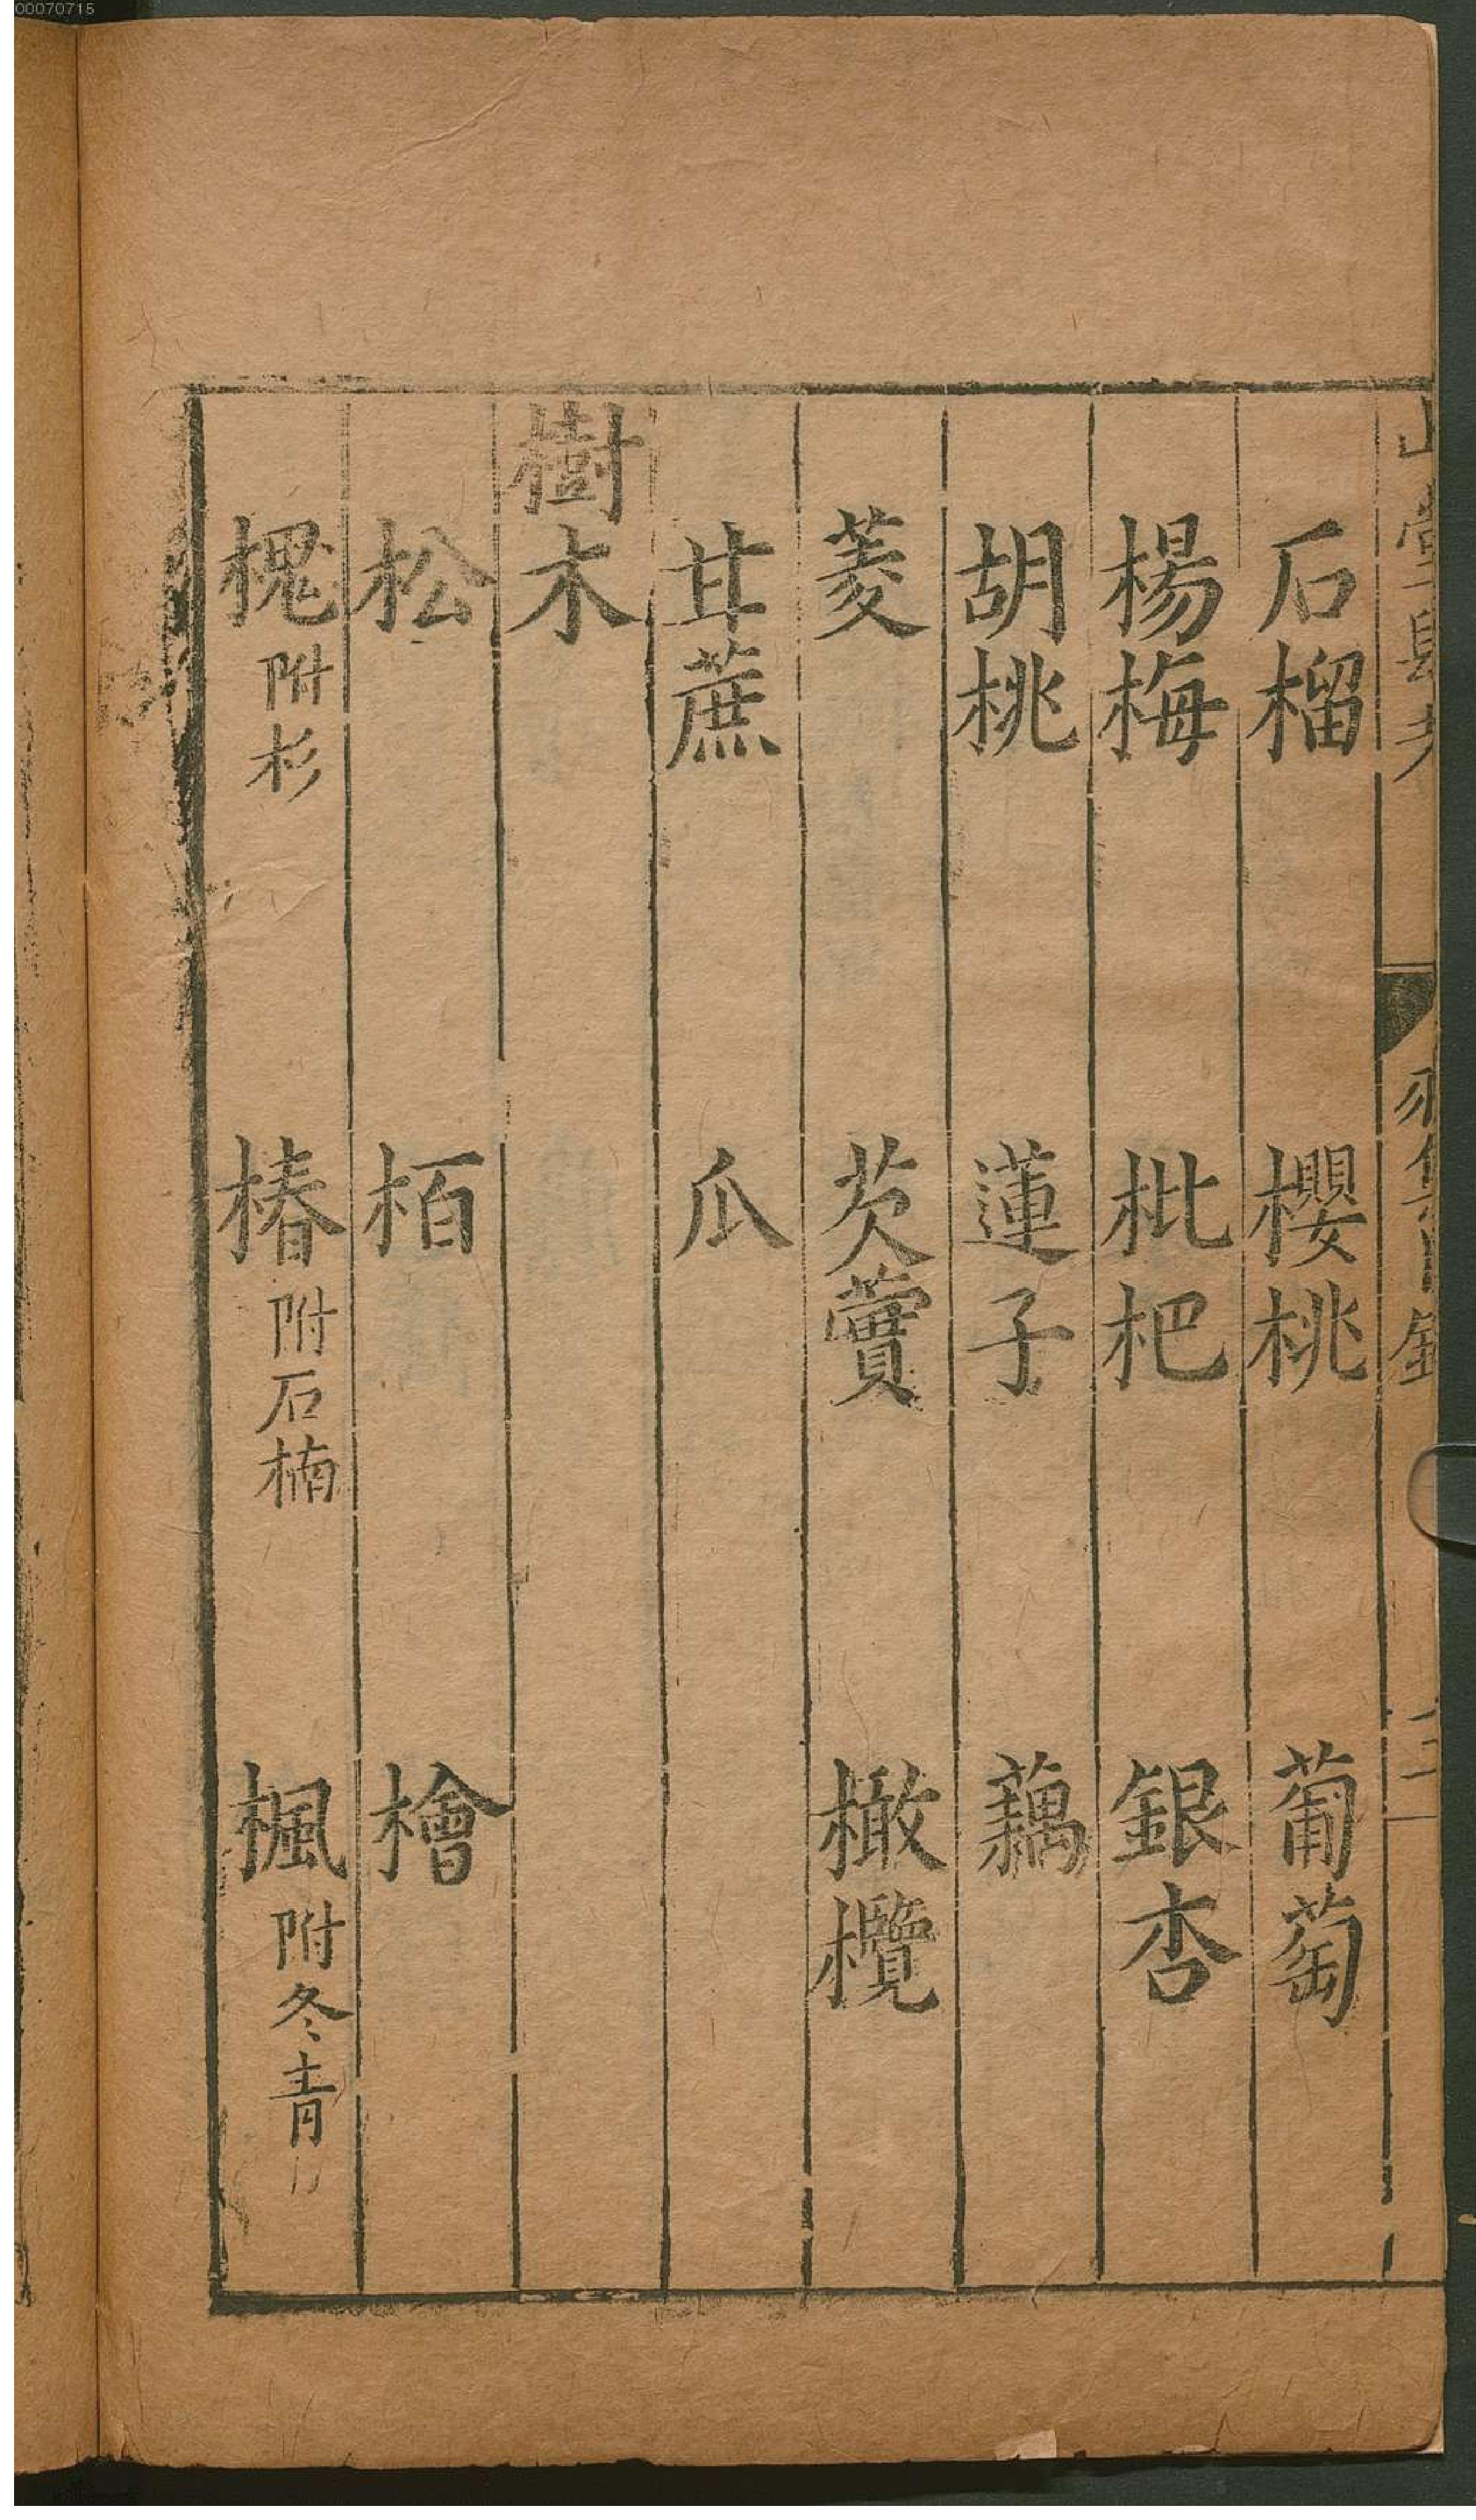 00070715
石榴 櫻桃 葡萄
楊梅 枇杷 銀杏
胡桃 蓮子 藕
菱 芡蕒 橄欖
甘蔗 瓜
樹木
松 栢 檜
槐附杉 椿附石楠 楓附冬青